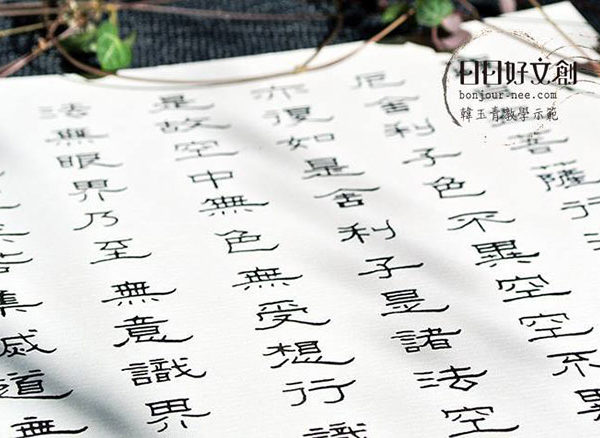 日日好文創
bonjour-nee.com
韓玉青教學示範
菩薩行
厄舍利子色不異空空不異
亦復如是舍利子是諸法空
是故空中無色無受想行識
法無眼界乃至無意識界
苦集滅道無